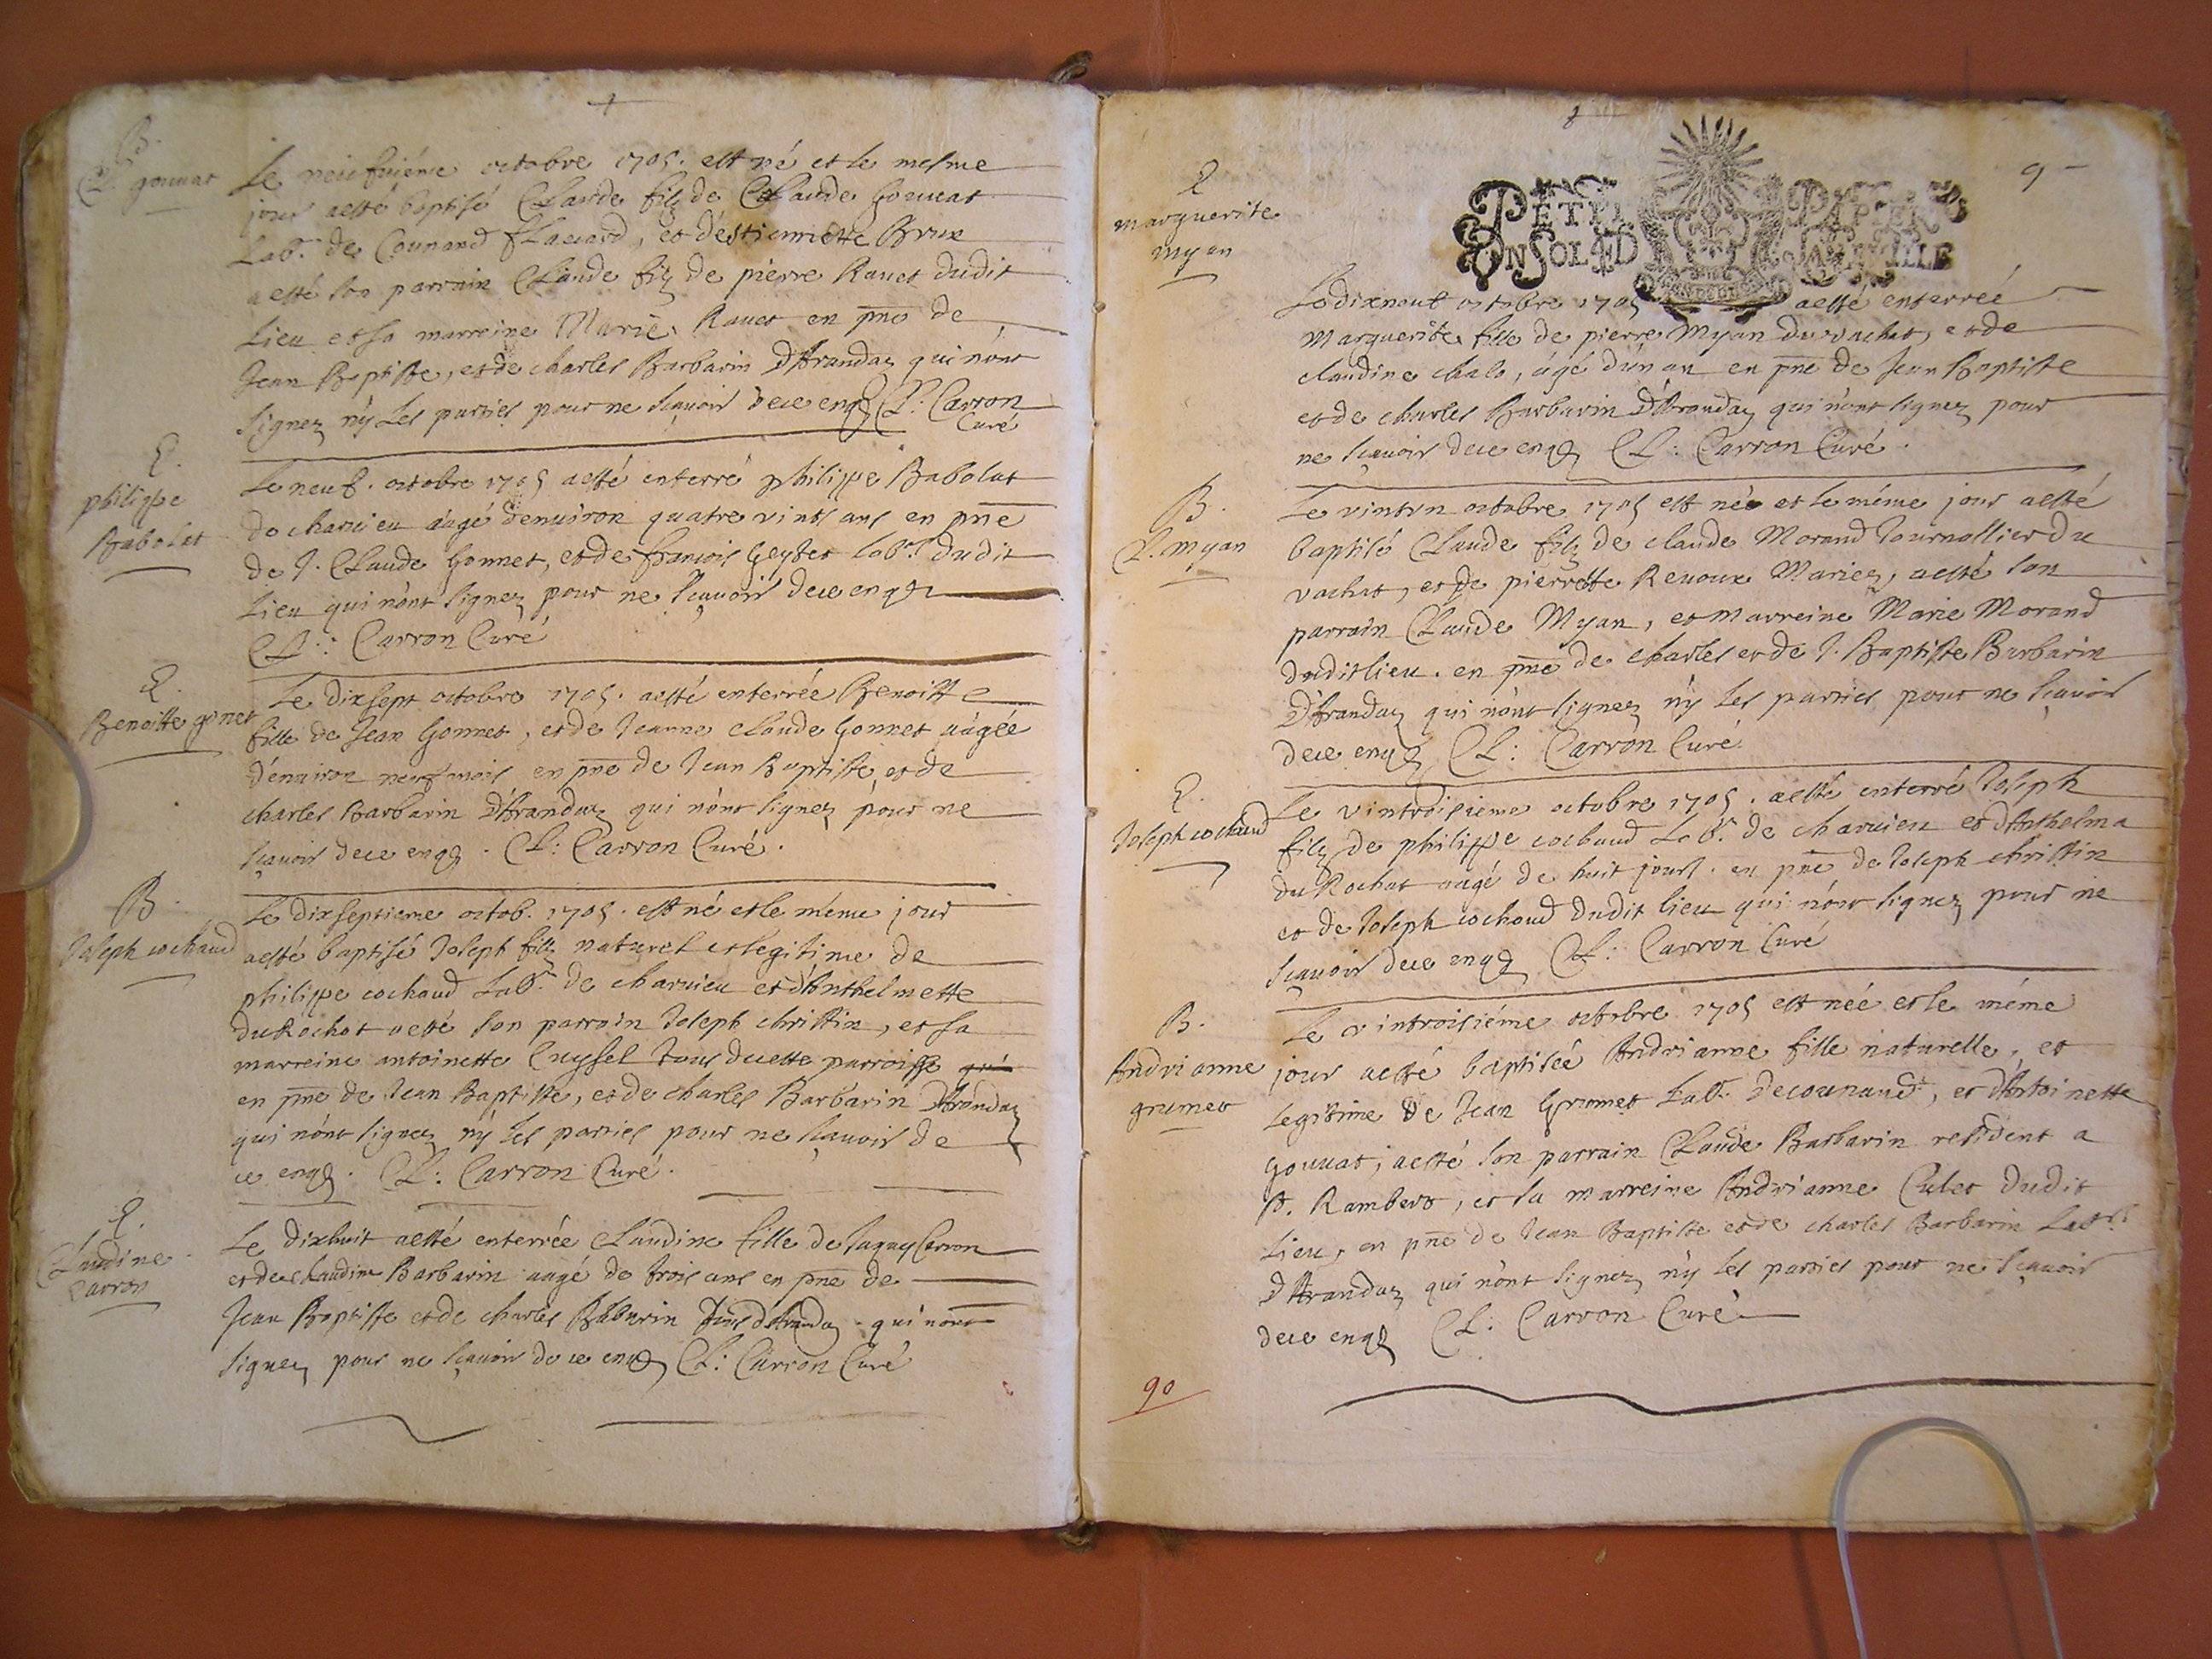 B.
Cl. gouuat
Le neufuiéme octobre 1705. est né et le mesme
jour aesté baptisé Claude filz de Claude Gouuat
Labr. de Counand, et d'éstiennette Brun
aesté son parrain Claude filz de pierre Rauet dudit
Lieu et sa marreine Marie Rauet en pñe de
Jean Baptiste, et de charles Barbarin D'Arandaz qui n'ont
signez n'y Les parties pour ne sçauoir de ce enqz Cl: Carron
Curé
E.
philippe
Babolat
Le neuf. octobre 1705 aesté enterré philippe Babolat
de charuieu aâgé denuiron quatre vints ans en pñe
de J. Claude Gonnet, et de françois Geyset Labrs dudit
Lieu qui n'ont signez pour ne sçauoir de ce enqz
Cl: Carron Curé
E.
Benoitte gonet
Le dixsept octobre 1705. aesté enterrée Benoitte
fille de Jean Gonnet, et de Jeanne claude Gonnet aâgée
d'énuiron neuf mois en pñe de Jean Baptiste, et de
charles Barbarin D'Arandaz qui n'ont signez pour ne
sçauoir de ce enqz. Cl: Carron Curé.
B.
Joseph cochaud
Le dixseptieme octob. 1705. est né et le méme jour
aesté baptisé Joseph filz naturel et legitime de
philippe cochaud Labr. de charuieu et d'Anthelmette
du Rochat aesté son parrain Joseph christin, et sa
marreine antoinette Cuyssel tous de cette parroisse qui
en pñe de Jean Baptiste, et de charles Barbarin D'Arandaz
qui n'ont signez n'y les parties pour ne sçauoir de
ce enqz. Cl: Carron Curé.
E.
Claudine
Carron
Le dixhuit aesté enterrée Claudine fille de Jaquy Carron
et de claudine Barbarin aâgé de trois ans en pñe de
Jean Baptiste et de charles Babarin d'Arandaz qui n'ont
signez pour ne sçauoir de ce enqz Cl: Carron Curé
9
E
marguerite
myan
PETIT PAPIER
UN SOL LA FEUILLE
Le dixneuf octobre 1705 aesté enterreé
Marguerite fille de pierre Myan du vachat, et de
claudine chalo, âgé d'un an en pñe de Jean Baptiste
et de charles Barbarin D'Arandaz qui n'ont signez pour
ne sçauoir de ce enqz Cl: Carron Curé.
B.
C. myan
Le vintvn octobre 1705 est né et le méme jour aesté
baptisé Claude filz de claude Morand Journallier du
vachat, et de pierrette Reuoux Mariez, aesté son
parrain Claude Myan, et marreine Marie Morand
dudit lieu. en pñe de charles et de J. Baptiste Barbarin
D'Arandaz qui n'ont signez n'y Les parties pour ne sçauoir
de ce enqz Cl: Carron Curé.
E.
Joseph cochaud
Le vintroisieme octobre 1705. aesté enterré Joseph
filz de philippe cochaud Labr. de charuieu et d'Anthelma
du Rochat aagé de huit jours. en pñe de Joseph christin
et de Joseph cochaud dudit lieu qui n'ont signez pour ne
sçauoir de ce enqz Cl: Carron Curé
B.
Andrianne
grumet
Le vintroisiéme octobre 1705 est née et le méme
jour aesté baptiséé Andrianne fille naturelle, et
legitime de Jean Grumet Labr. de counand, et d'Antoinette
Gouuat, aesté son parrain Claude Barbarin resident a
St. Rambert, et sa marreine Andrianne Culet dudit
Lieu, en pñe de Jean Baptiste et de charles Barbarin Labrs
D'Arandaz qui n'ont signez n'y Les parties pour ne sçauoir
de ce enqz Cl: Carron Curé
90